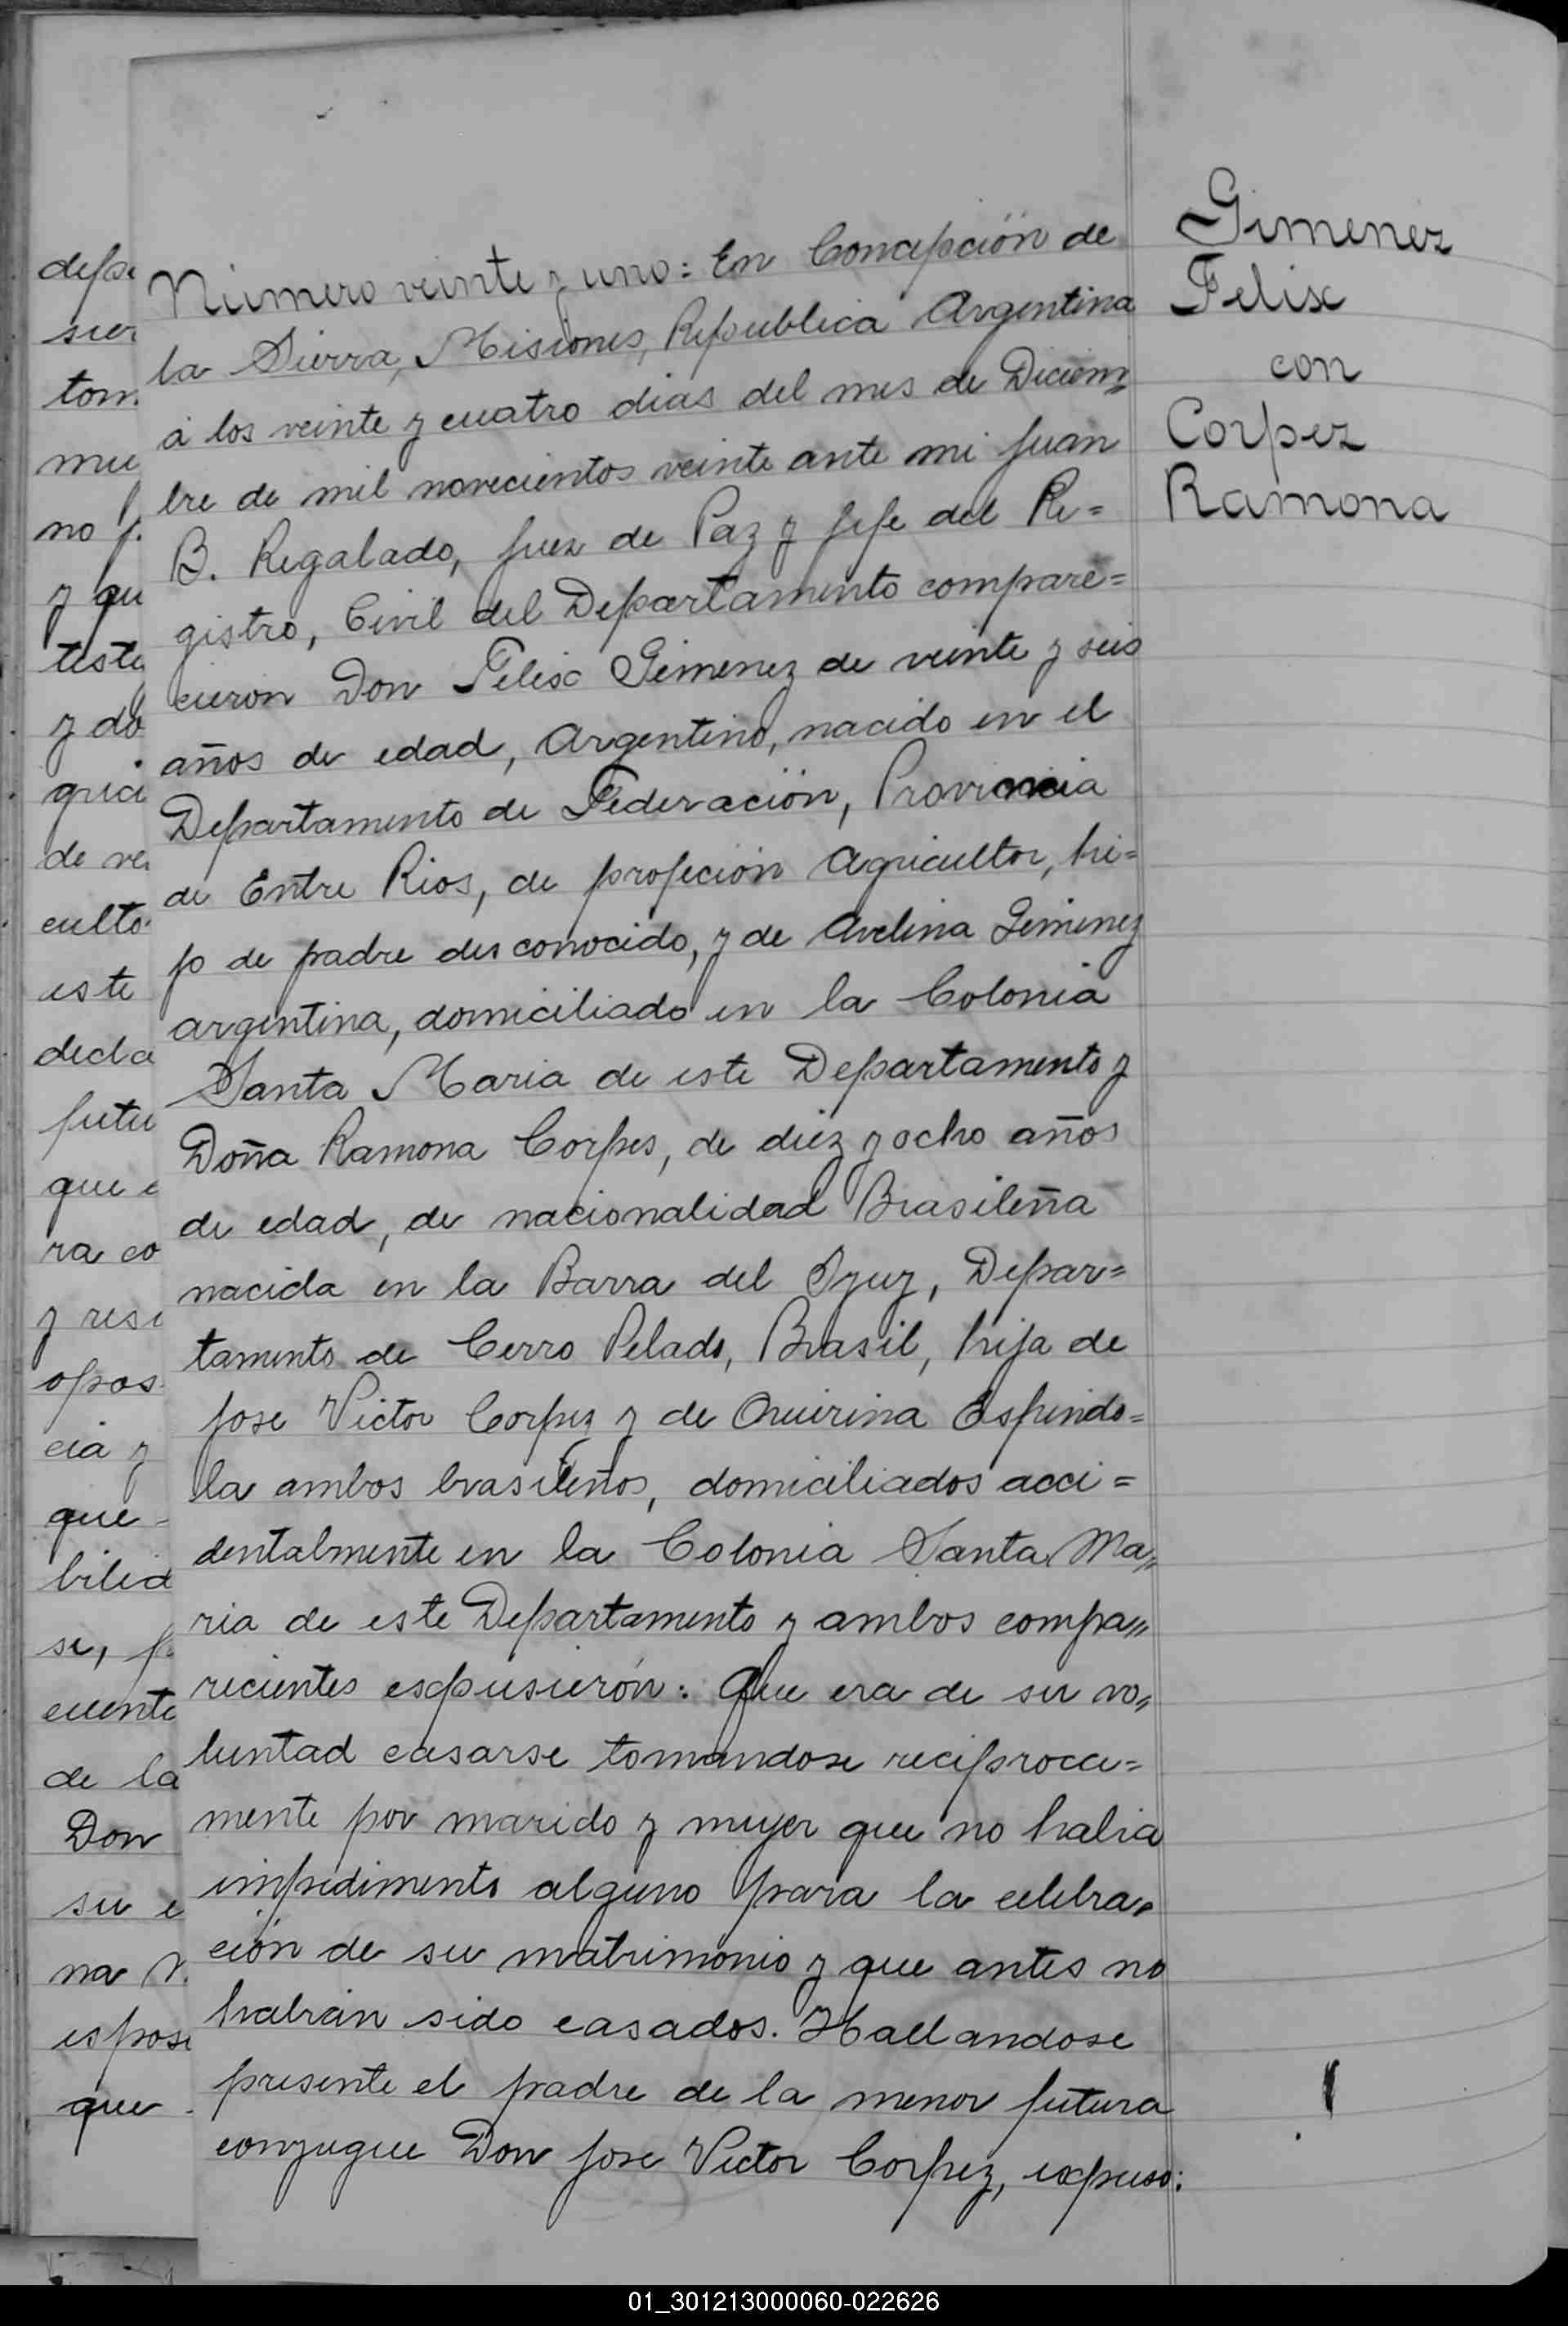 Gimenez
Felix
con
Corpez
Ramona
Número veinte y uno: En Concepción de
la Sierra, Misiones, Republica Argentina
á los veinte y cuatro dias del mes de Diciem=
bre de mil novecientos veinte ante mi Juan
B. Regalado, Juez de Paz y Jefe del Re=
gistro, Civil del Departamento compare=
cieron Don Felix Gimenez de veinte y seis
años de edad, Argentino, nacido en el
Departamento de Federación, Provincia
de Entre Rios, de profeción Agricultor, hi=
jo de padre desconocido, y de Avelina Gimenez
argentina, domiciliado en la Colonia
Santa Maria de este Departamento y
Doña Ramona Corpes, de diez y ocho años
de edad, de nacionalidad Brasileña
nacida en la Barra del Yjuy, Depar=
tamento de Cerro Pelado, Brasil, hija de
Jose Victor Corpez y de Quirina Espindo=
la ambos brasileños, domiciliados acci=
dentalmente en la Colonia Santa Ma=
ria de este Departamento y ambos compa=
recientes expusierón: Que era de su vo=
luntad casarse tomandose reciproca=
mente por marido y muyer que no habia
impedimento alguno para la celebra=
ción de su matrimonio y que antes no
habián sido casados. Hallandose
presente el padre de la menor futura
conyugue Don Jose Victor Corpez, expuso:
depo
sier
tom
mu
no
y qu
testi
y do
que
culto
este
decla
futu
que
ra co
y resi
opos
cia y
que
bilid
se, p
cuente
de la
Don
su e
na
espos
que
01_301213000060-022626